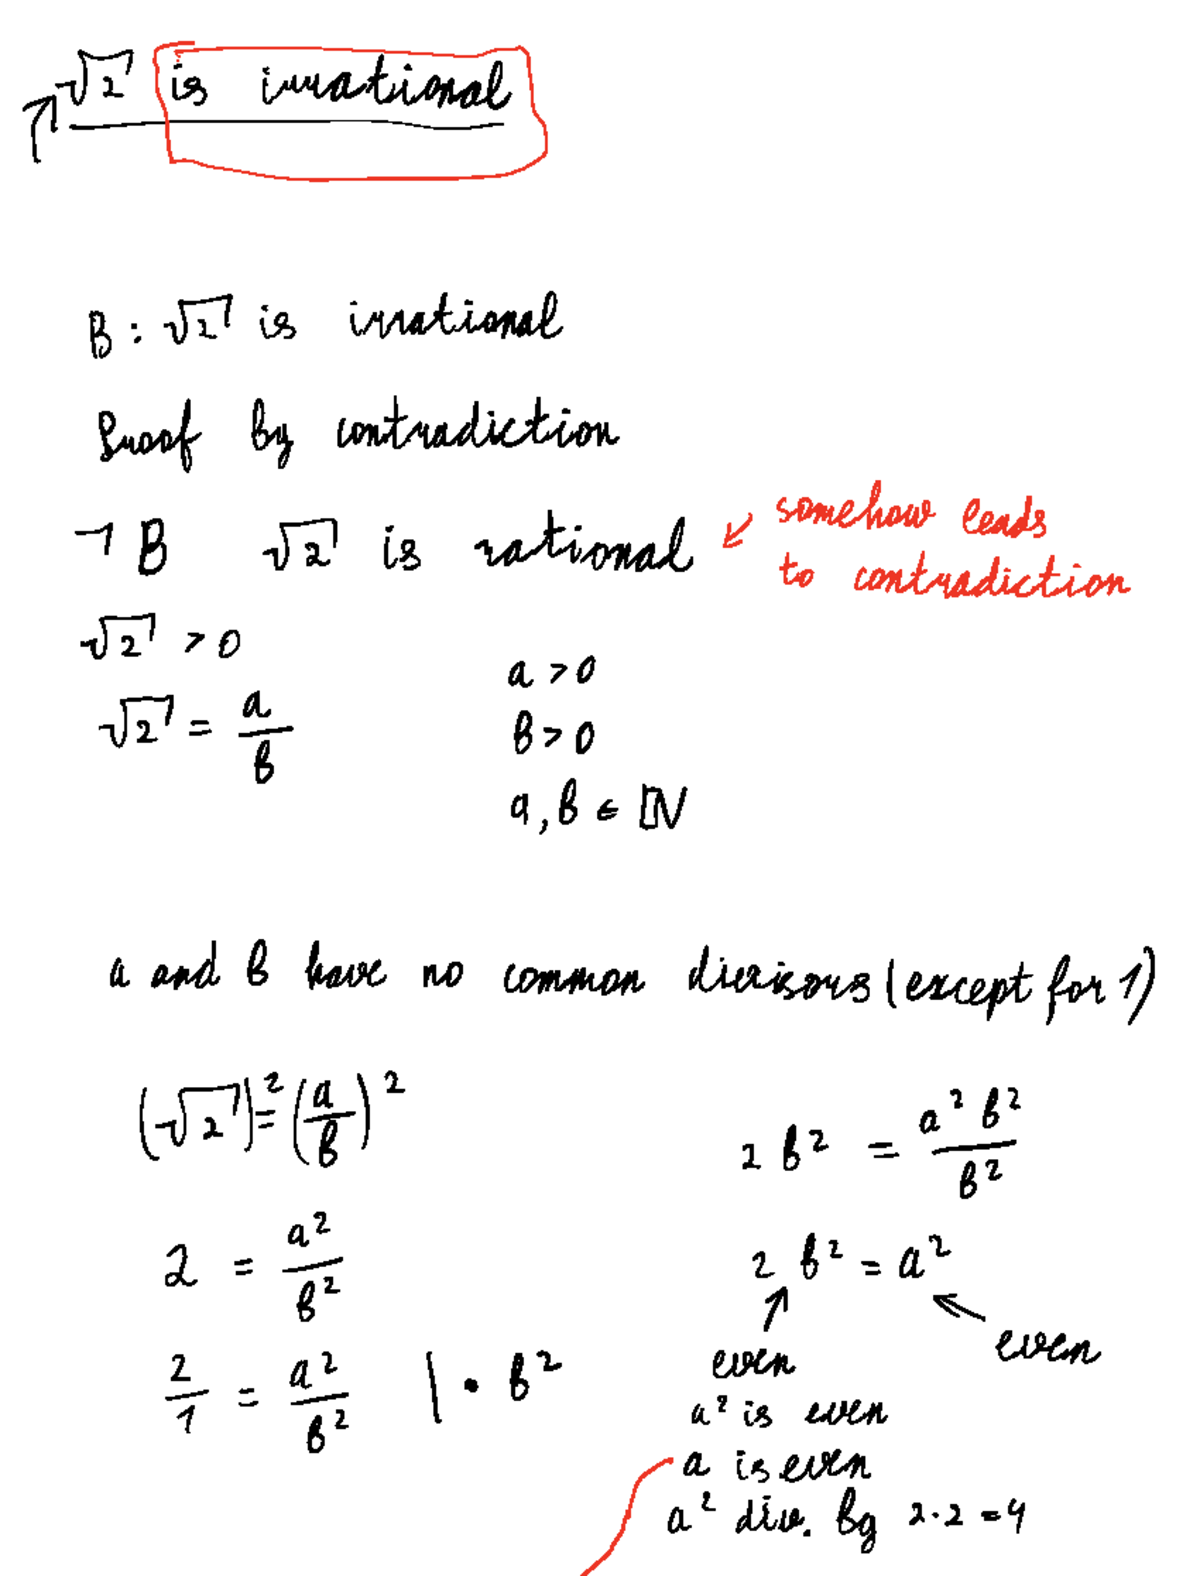 √2 is irrational
B : √2 is irrational
Proof by contradiction
¬ B √2 is rational
somehow leads
to contradiction
√2 > 0
√2 = a/b
a > 0
b > 0
a, b ∈ ℕ
a and b have no common divisors (except for 1)
(√2)² = (a/b)²
2 = a²/b²
2/1 = a²/b² | · b²
2 b² = a² b²/b²
2 b² = a²
even
even
a² is even
a is even
a² div. by 2·2 = 4